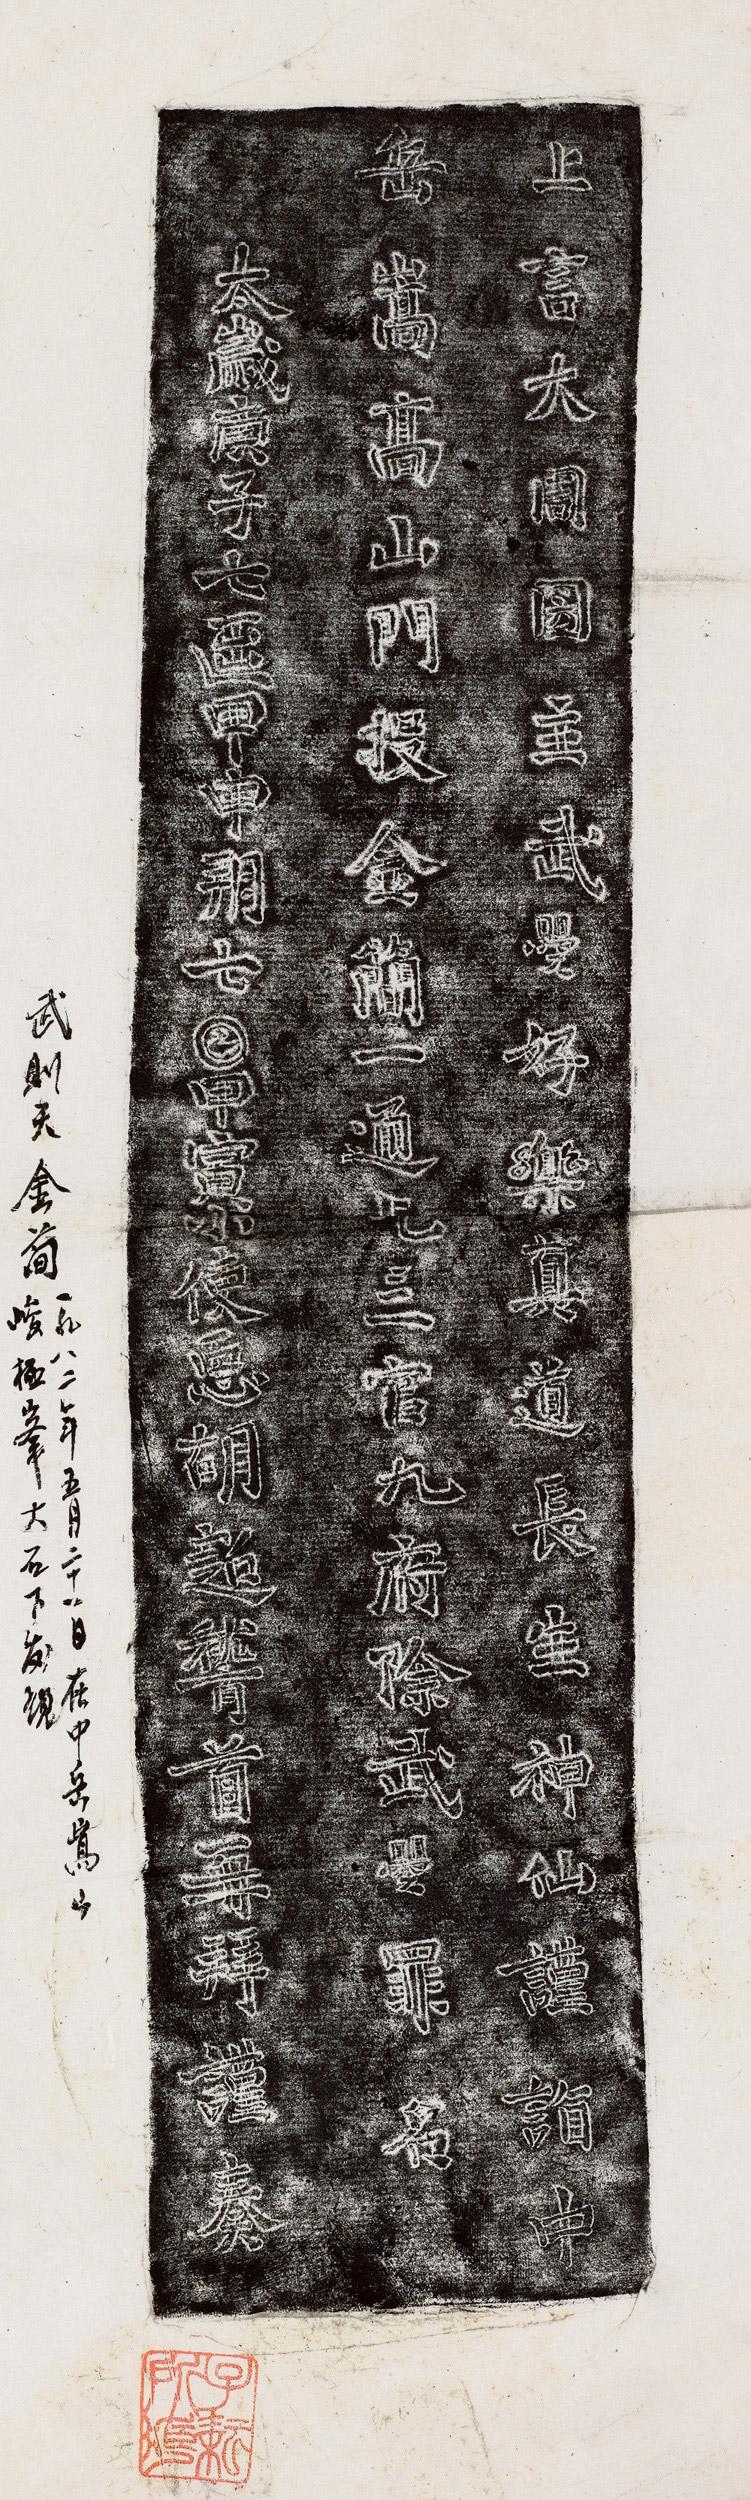 上言大周圀主武曌好樂真道長生神仙謹詣中
岳嵩高山門投金簡一通乞三官九府除武曌罪名
太歲庚子七𠥱甲申朔七𡆠甲寅小使𢘑胡超稽首再拜謹奏
武则天金简
一九八二年五月二十一日在中岳嵩山
峻極峯大石下发现